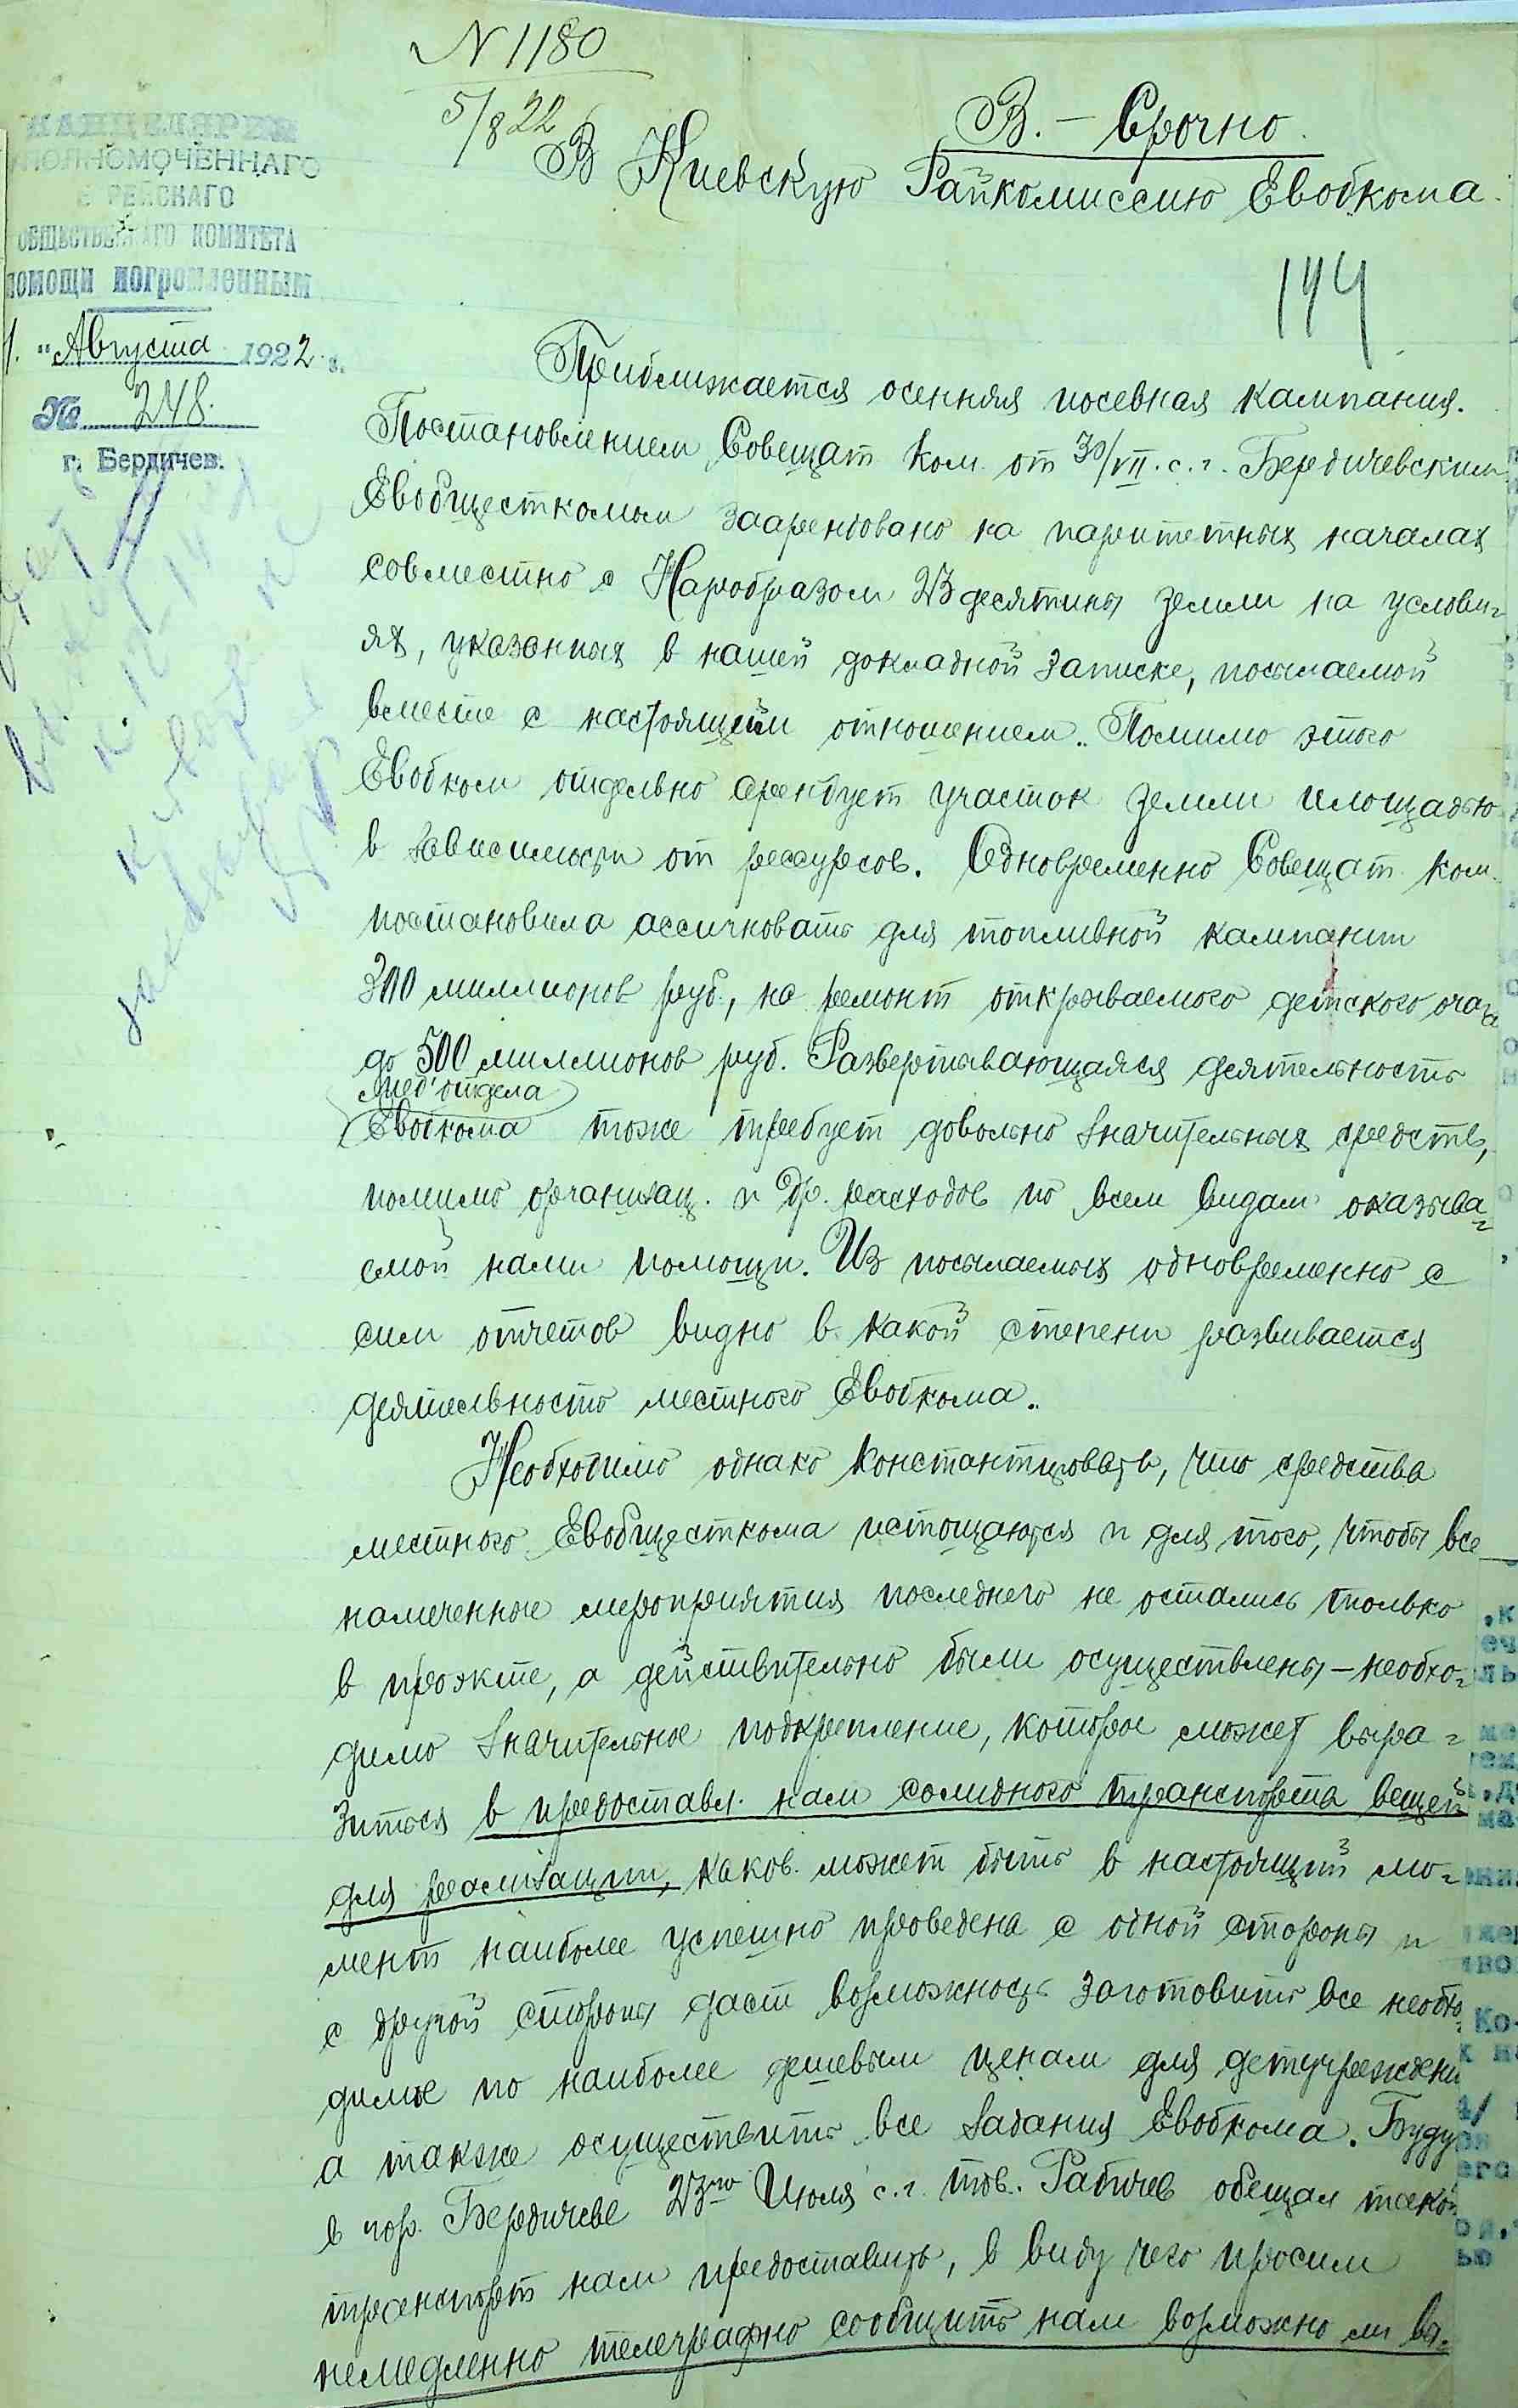 N 1180
5/8 22
В. - Срочно.
В Киевскую Райкомиссию Евобкома.
КАНЦЕЛЯРИЯ
УПОЛНОМОЧЕННАГО
ЕВРЕЙСКАГО
ОБЩЕСТВЕННАГО КОМИТЕТА
ПОМОЩИ ПОГРОМЛЕННЫМ
1. "Августа 1922 г.
№ 248.
г. Бердичев.
144
Приближается осенняя посевная кампания.
Постановлением Совещат ком. от 30/VII. с. г. Бердичевским
Евобщесткомом заарендовано на паритетных началах
совместно с Наробразом 23 десятины земли на услови-
ях, указанных в нашей докладной записке, посылаемой
вместе с настоящим отношением. Помимо этого
Евобком отдельно арендует участок земли площадью
в зависимости от рессурсов. Одновременно Совещат. ком.
постановила ассигновать для топливной кампании
300 миллионов руб., на ремонт открываемого детского очага
до 500 миллионов руб. Развертывающаяся деятельность
Мед'отдела
Евобкома тоже требует довольно значительных средств,
помимо организац. и др. расходов по всем видам оказыва-
емой нами помощи. Из посылаемых одновременно с
сим отчетов видно в какой степени развивается
деятельность местного Евобкома.
Необходимо однако константировать, что средства
местного Евобщесткома истощаются и для того, чтобы все
намеченные мероприятия последнего не остались только
в проэкте, а действительно были осуществлены - необхо-
димо значительное подкрепление, которое может выра-
зиться в предоставл. нам солидного транспорта вещей
для реализации, каков. может быть в настоящий мо-
мент наиболее успешно проведена с одной стороны и
с другой стороны даст возможность заготовить все необхо-
димое по наиболее дешевым ценам для детучреждени
а также осуществить все задания Евобкома. Буду
в гор. Бердичеве 23го Июля с. г. тов. Рабичев обещал такой
транспорт нам предоставить, в виду чего просим
немедленно телеграфно сообщить нам возможно ли вы-